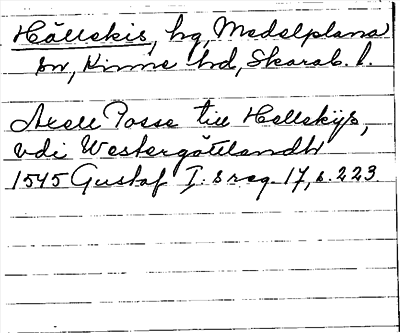 Hällekis, hg, Medelplana
sn, Kinne hd, Skarab. l.
Axell Posse till Hellekijs,
vdi Westergöttlandh
1545 Gustaf I:s reg. 17, s. 223.